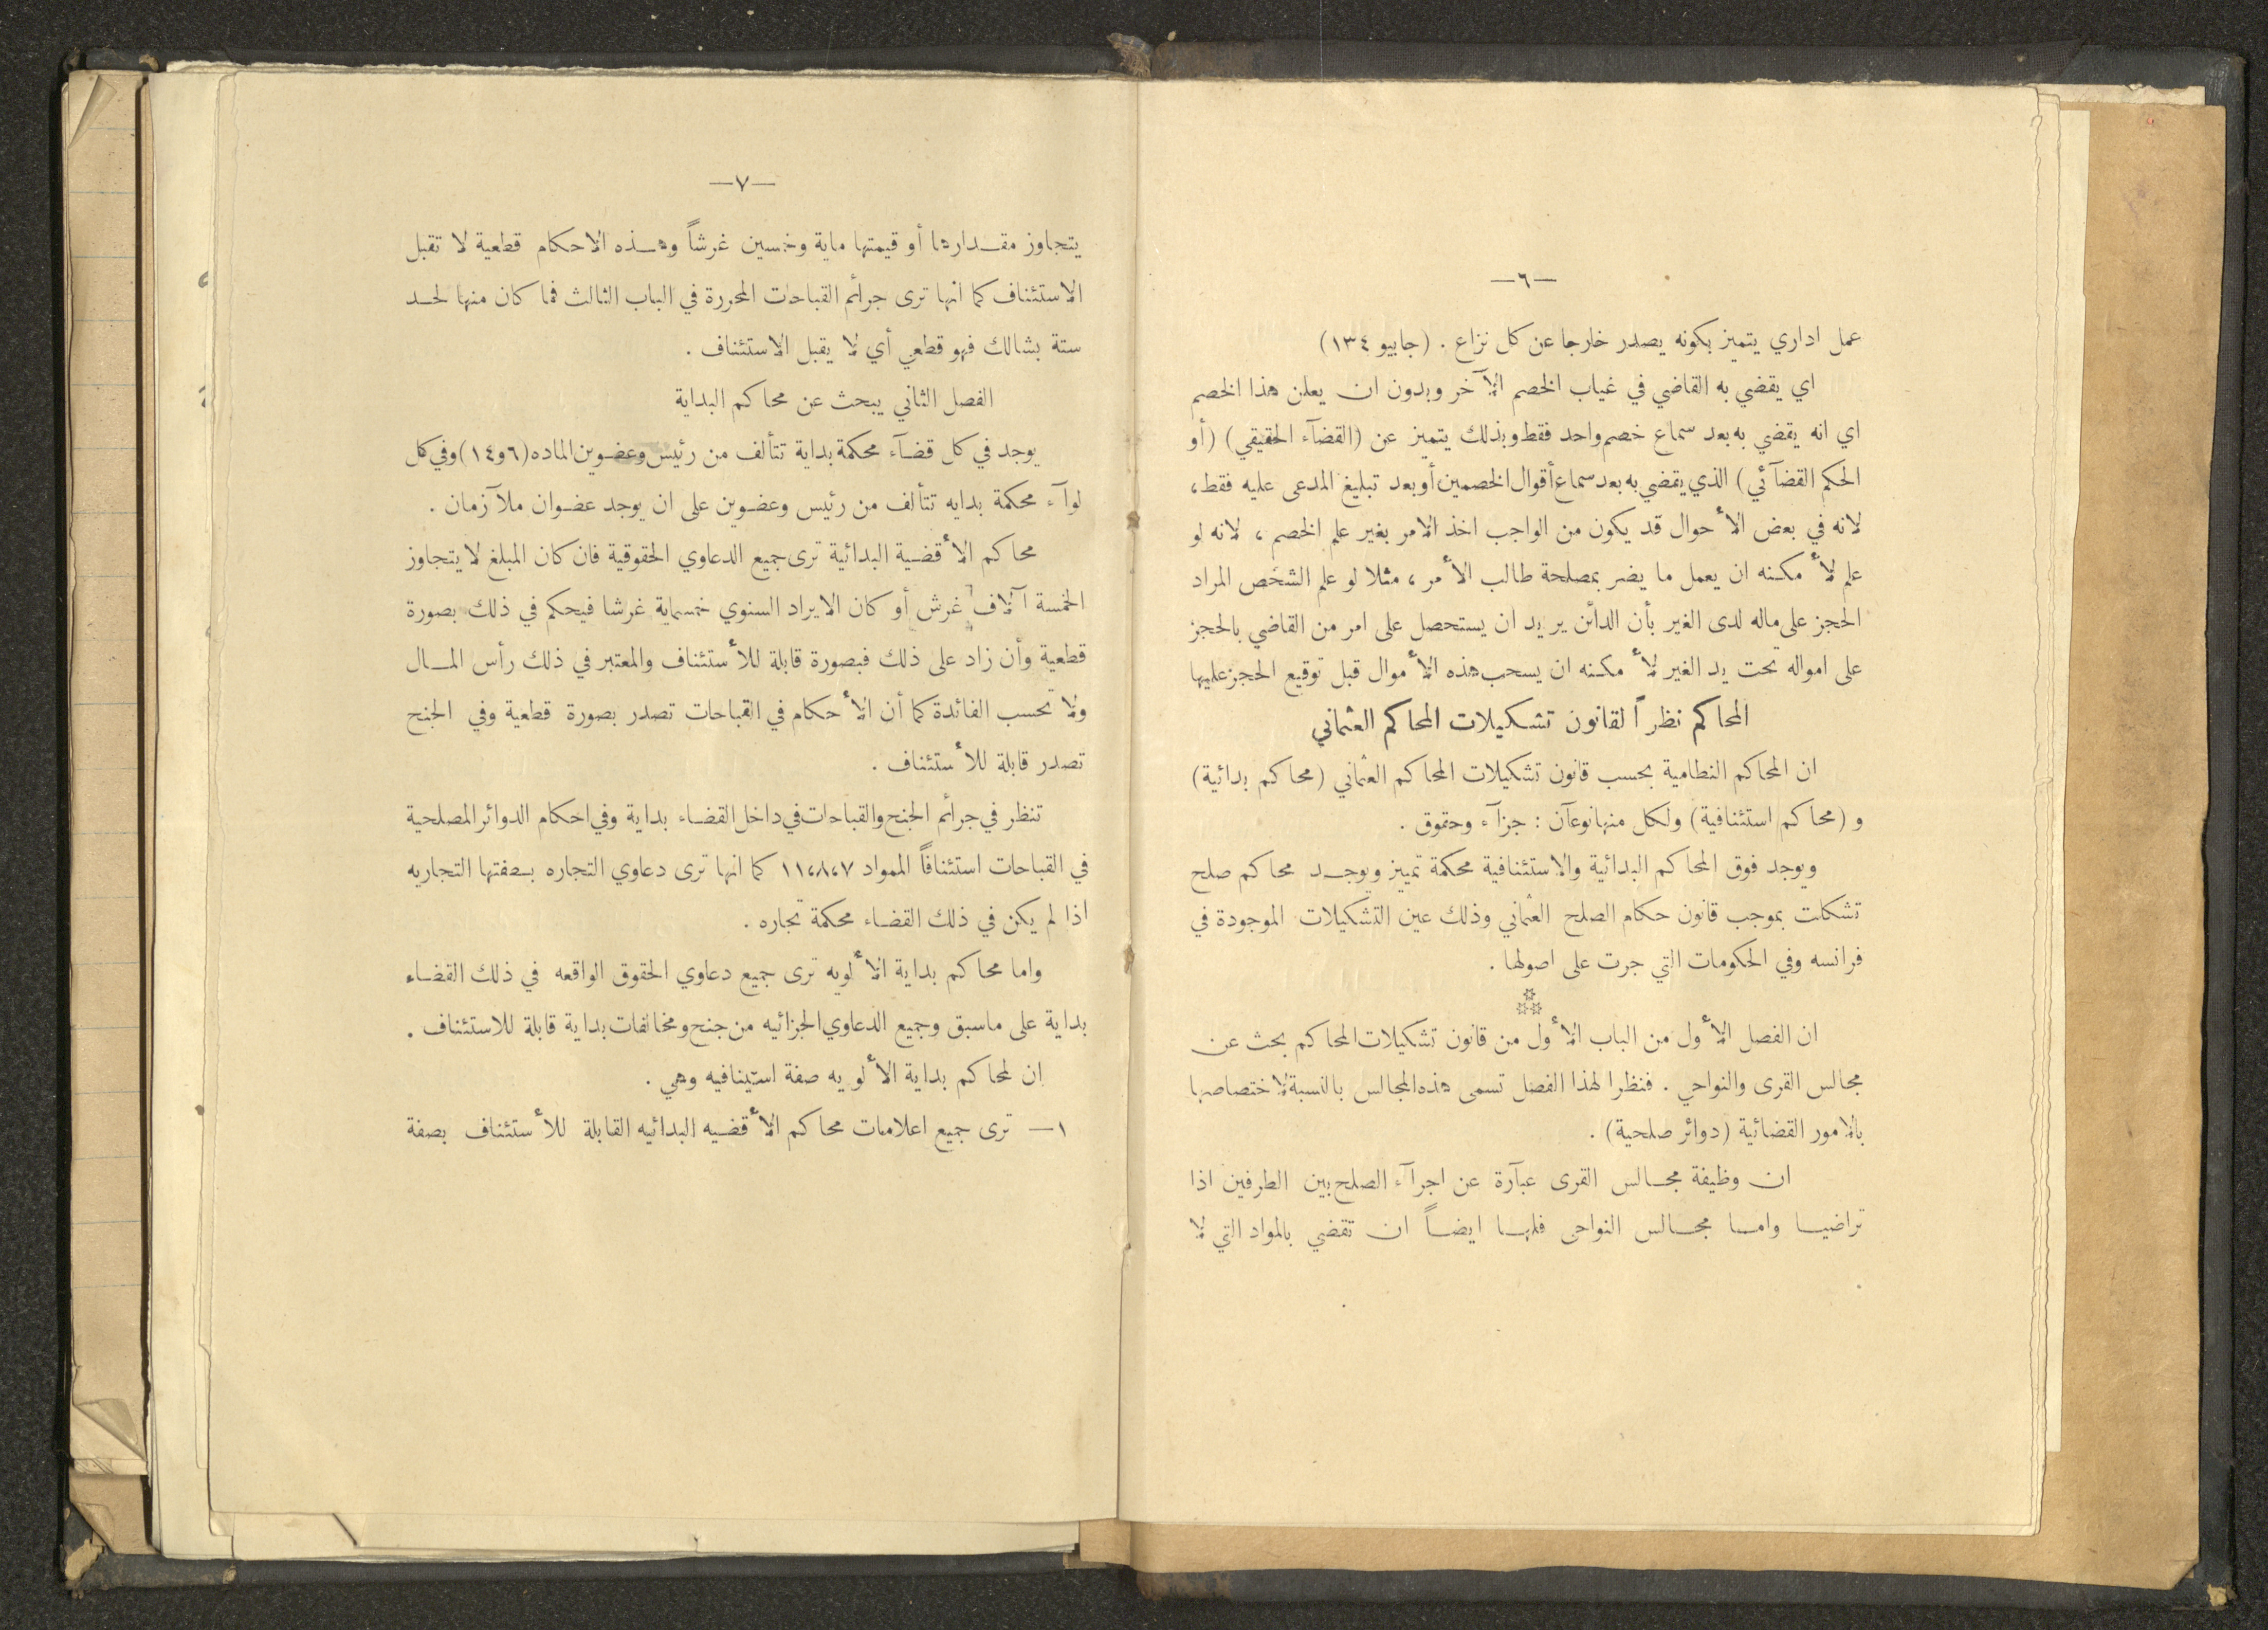 —٦—
عمل اداري يتميز بكونه يصدر خارجا عن كل نزاع . (جابيو ١٣٤)
اي يقضي به القاضي في غياب الخصم الآخر وبدون ان يعلن هذا الخصم
اي انه يقضي به بعد سماع خصم واحد فقط وبذلك يتميز عن (القضآء الحقيقي) (أو
الحكم القضآئي) الذي يقضي به بعد سماع أقوال الخصمين أو بعد تبليغ المدعى عليه فقط،
لانه في بعض الأحوال قد يكون من الواجب اخذ الامر بغير علم الخصم ، لانه لو
علم لأمكنه ان يعمل ما يضر بمصلحة طالب الأمر ، مثلا لو علم الشخص المراد
الحجز على ماله لدى الغير بأن الدائن يريد ان يستحصل على امر من القاضي بالحجز
على امواله تحت يد الغير لأمكنه ان يسحب هذه الأموال قبل توقيع الحجز عليها
المحاكم نظراً لقانون تشكيلات المحاكم العثماني
ان المحاكم النطامية بحسب قانون تشكيلات المحاكم العثماني (محاكم بدائية)
و (محاكم استئنافية) ولكل منها نوعآن : جزآء وحقوق .
ويوجد فوق المحاكم البدائية والاستئنافية محكمة تمييز ويوجد محاكم صلح
تشكلت بموجب قانون حكام الصلح العثماني وذلك عين التشكيلات الموجودة في
فرانسه وفي الحكومات التي جرت على اصولها .
⁂
ان الفصل الأول من الباب الأول من قانون تشكيلات المحاكم بحث عن
مجالس القرى والنواحي . فنظرا لهذا الفصل تسمى هذه المجالس بالنسبة لاختصاصها
بالامور القضائية (دوائر صلحية) .
ان وظيفة مجالس القرى عبآرة عن اجرآء الصلح بين الطرفين اذا
تراضيا واما مجالس النواحى فلها ايضاً ان تقضي بالمواد التي لا
—٧—
يتجاوز مقدارها أو قيمتها ماية وخمسين غرشاً وهذه الاحكام قطعية لا تقبل
الاستئناف كما انها ترى جرائم القباحات المحررة في الباب الثالث فما كان منها لحد
ستة بشالك فهو قطعي أي لا يقبل الاستئناف .
الفصل الثاني يبحث عن محاكم البداية
يوجد في كل قضآء محكمة بداية تتألف من رئيس وعضوين الماده (٦و١٤) وفي كل
لوآء محكمة بدايه تتألف من رئيس وعضوين على ان يوجد عضوان ملآزمان .
محاكم الأقضية البدائية ترى جميع الدعاوي الحقوقية فان كان المبلغ لا يتجاوز
الخمسة آلاف غرش أو كان الايراد السنوي خمسماية غرشا فيحكم في ذلك بصورة
قطعية وأن زاد على ذلك فبصورة قابلة للأستئناف والمعتبر في ذلك رأس المال
ولا تحسب الفائدة كما أن الأحكام في القباحات تصدر بصورة قطعية وفي الجنح
تصدر قابلة للأستئناف .
تنظر في جرائم الجنح والقباحات في داخل القضاء بداية وفي احكام الدوائر المصلحية
في القباحات استئنافاً الممواد ١١،٨،٧ كما انها ترى دعاوي التجاره بصفتها التجاريه
اذا لم يكن في ذلك القضاء محكمة تجاره .
واما محاكم بداية الألويه ترى جميع دعاوي الحقوق الواقعه في ذلك القضاء
بداية على ماسبق وجميع الدعاوي الجزائيه من جنح ومخالفات بداية قابلة للاستئناف .
ان لمحاكم بداية الألويه صفة استينافيه وهي .
١— ترى جميع اعلامات محاكم الأقضيه البدائيه القابلة للأستئناف بصفة